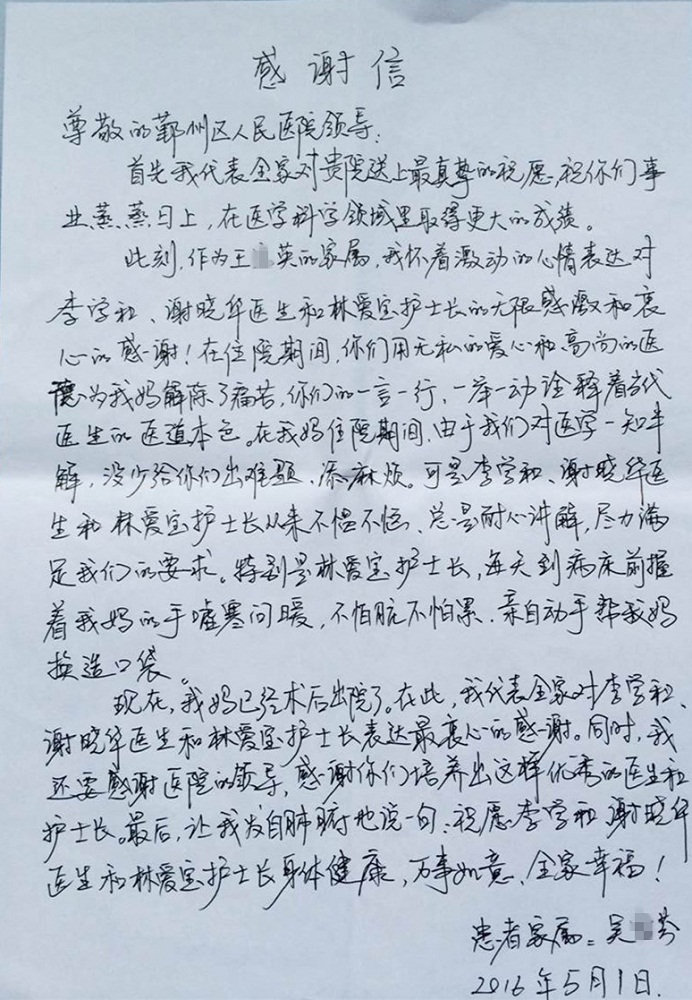 感谢信
尊敬的鄞州区人民医院领导:
首先我代表全家对贵院送上最真挚的祝愿,祝你们事
业蒸蒸日上,在医学科学领域里取得更大的成绩。
此刻,作为王英的家属,我怀着激动的心情表达对
李学和、谢晓华医生和林爱宝护士长的无限感激和衷
心的感谢!在住院期间,你们用无私的爱心和高尚的医
德为我妈解除了痛苦,你们的一言一行,一举一动诠释着当代
医生的医道本色。在我妈住院期间,由于我们对医学一知半
解,没少给你们出难题、添麻烦。可是李学和、谢晓华医
生和林爱宝护士长从来不愠不恼、总是耐心讲解,尽力满
足我们的要求。特别是林爱宝护士长,每天到病床前握
着我妈的手嘘寒问暖,不怕脏不怕累,亲自动手帮我妈
换造口袋。
现在,我妈已经术后出院了。在此,我代表全家对李学和、
谢晓华医生和林爱宝护士长表达最衷心的感谢。同时,我
还要感谢医院的领导,感谢你们培养出这样优秀的医生和
护士长。最后,让我发自肺腑地说一句:祝愿李学和谢晓华
医生和林爱宝护士长身体健康,万事如意、全家幸福!
患者家属:吴芬
2016年5月1日.